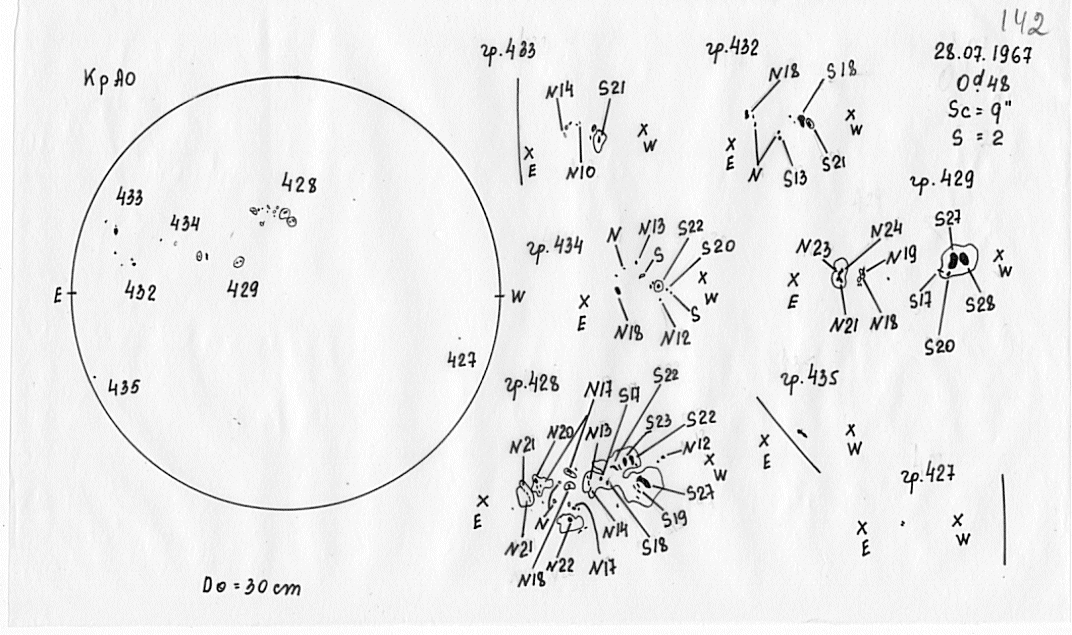 142
28.07.1967
0ᵈ.48
Sc = 9"
S = 2
КрАО
433
434
428
432
429
E
W
427
435
D⊙ = 30 cm
гр.433
N14
S21
X
E
X
W
N10
гр.432
N18
S18
X
E
X
W
N
S13
S21
гр.434
N
N13
S22
S
S20
X
E
X
W
S
N18
N12
гр.429
S27
N23
N24
N19
X
E
X
W
N21
N18
S17
S28
S20
гр.428
N17
S17
S22
N21
N20
N13
S23
S22
N12
X
E
X
W
S27
S19
N
N14
S18
N21
N18
N22
N17
гр.435
X
E
X
W
гр.427
X
E
X
W